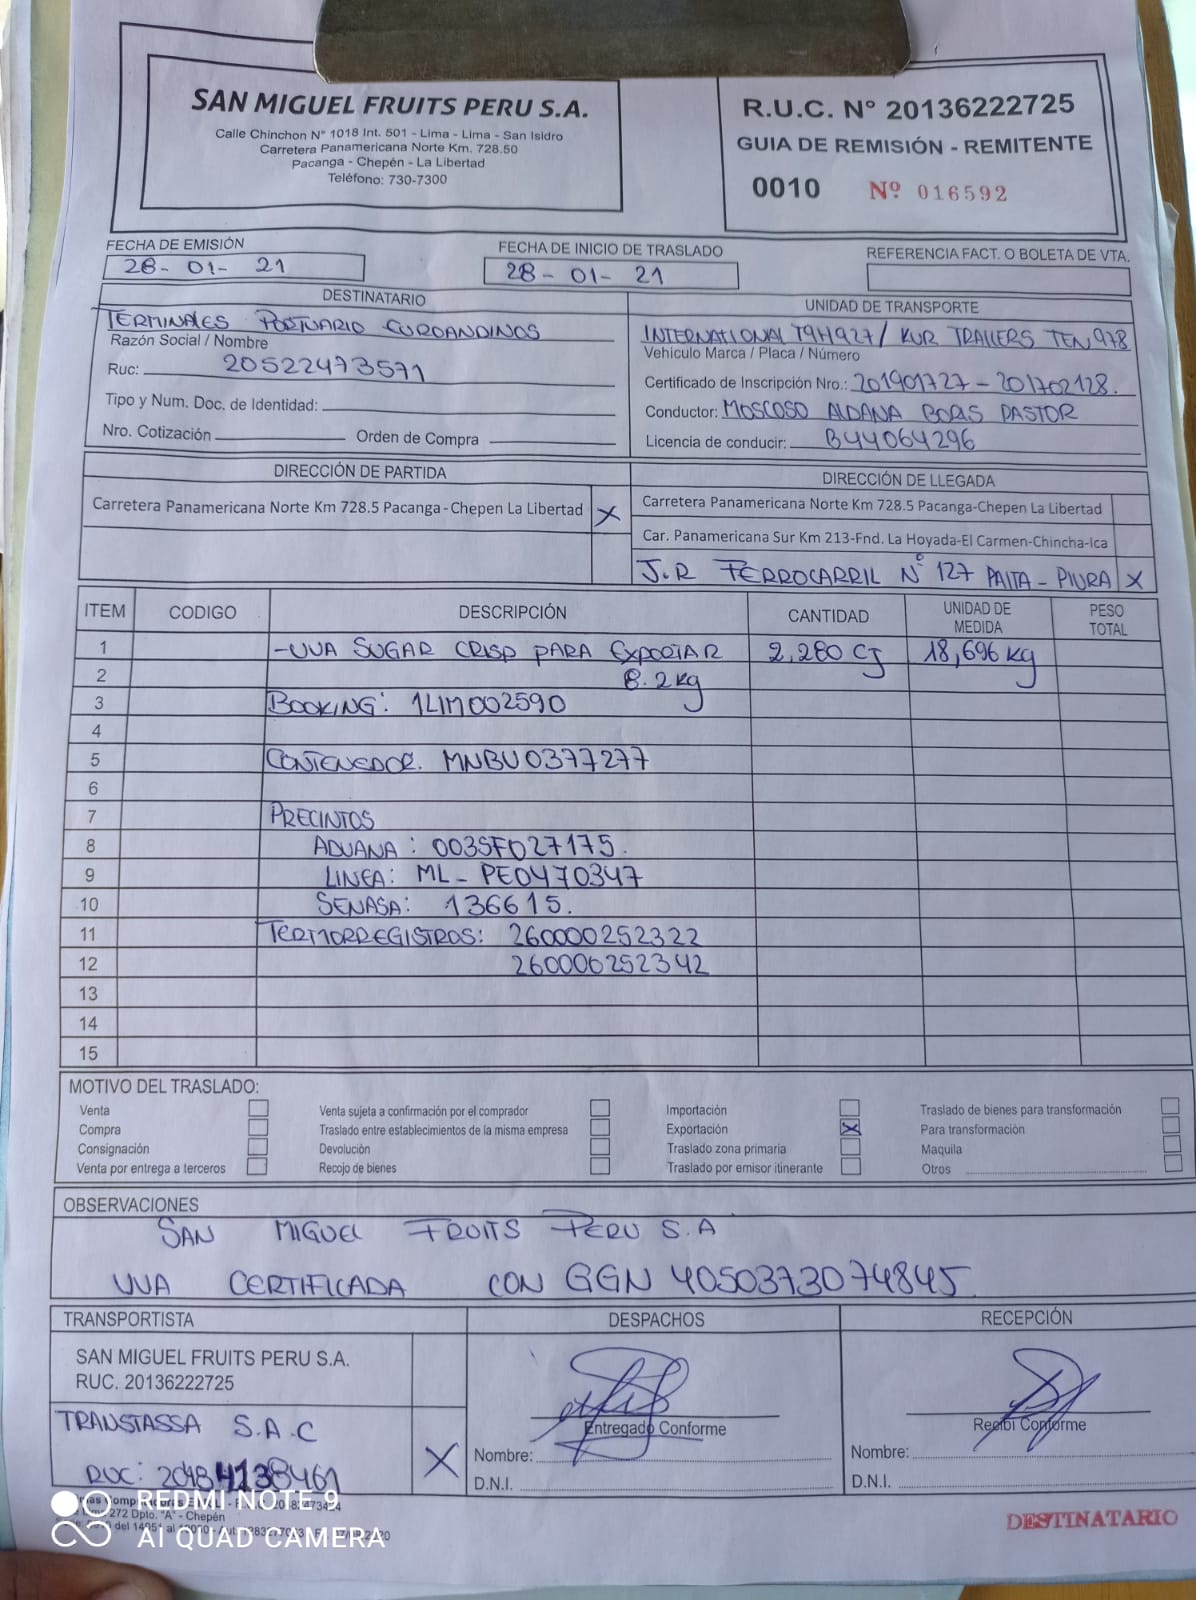 SAN MIGUEL FRUITS PERU S.A.
Calle Chinchon N° 1018 Int. 501 - Lima - Lima - San Isidro
Carretera Panamericana Norte Km. 728.50
Pacanga - Chepén - La Libertad
Teléfono: 730-7300
R.U.C. N° 20136222725
GUIA DE REMISIÓN - REMITENTE
0010 Nº 016592
FECHA DE EMISIÓN
28-01-21
FECHA DE INICIO DE TRASLADO
28-01-21
REFERENCIA FACT. O BOLETA DE VTA.
DESTINATARIO
TERMINALES PORTUARIO EUROANDINOS
Razón Social / Nombre
Ruc: 20522473571
Tipo y Num. Doc. de Identidad:
Nro. Cotización Orden de Compra
UNIDAD DE TRANSPORTE
INTERNATIONAL T9H927/ KUR TRAILERS TEN978
Vehículo Marca / Placa / Número
Certificado de Inscripción Nro.: 201901727-201702128.
Conductor: MOSCOSO ALDANA BORIS PASTOR
Licencia de conducir: B44064296
DIRECCIÓN DE PARTIDA
Carretera Panamericana Norte Km 728.5 Pacanga-Chepen La Libertad X
DIRECCIÓN DE LLEGADA
Carretera Panamericana Norte Km 728.5 Pacanga-Chepen La Libertad
Car. Panamericana Sur Km 213-Fnd. La Hoyada-El Carmen-Chincha-Ica
J.R FERROCARRIL N° 127 PAITA-PIURA X
ITEM CODIGO DESCRIPCIÓN CANTIDAD UNIDAD DE MEDIDA PESO TOTAL
1 -UVA SUGAR CRISP PARA EXPORTAR 2,280 CJ 18,696 kg
2 8.2kg
3 BOOKING: 1LIM002590
4
5 CONTENEDOR. MNBU0377277
6
7 PRECINTOS
8 ADUANA: 003SF027175.
9 LINEA: ML-PE0470347
10 SENASA: 136615.
11 TERMORREGISTROS: 260000252322
12 260000252342
13
14
15
MOTIVO DEL TRASLADO:
Venta
Compra
Consignación
Venta por entrega a terceros
Venta sujeta a confirmación por el comprador
Traslado entre establecimientos de la misma empresa
Devolución
Recojo de bienes
Importación
Exportación X
Traslado zona primaria
Traslado por emisor itinerante
Traslado de bienes para transformación
Para transformación
Maquila
Otros
OBSERVACIONES
SAN MIGUEL FRUITS PERU S.A
UVA CERTIFICADA CON GGN 4050373074845
TRANSPORTISTA
SAN MIGUEL FRUITS PERU S.A.
RUC. 20136222725
TRANSTASSA S.A.C X
RUC: 20484138461
DESPACHOS
Entregado Conforme
Nombre:
D.N.I.
RECEPCIÓN
Recibí Conforme
Nombre:
D.N.I.
272 Dplo. "A" - Chepén
DESTINATARIO
REDMI NOTE 9
AI QUAD CAMERA